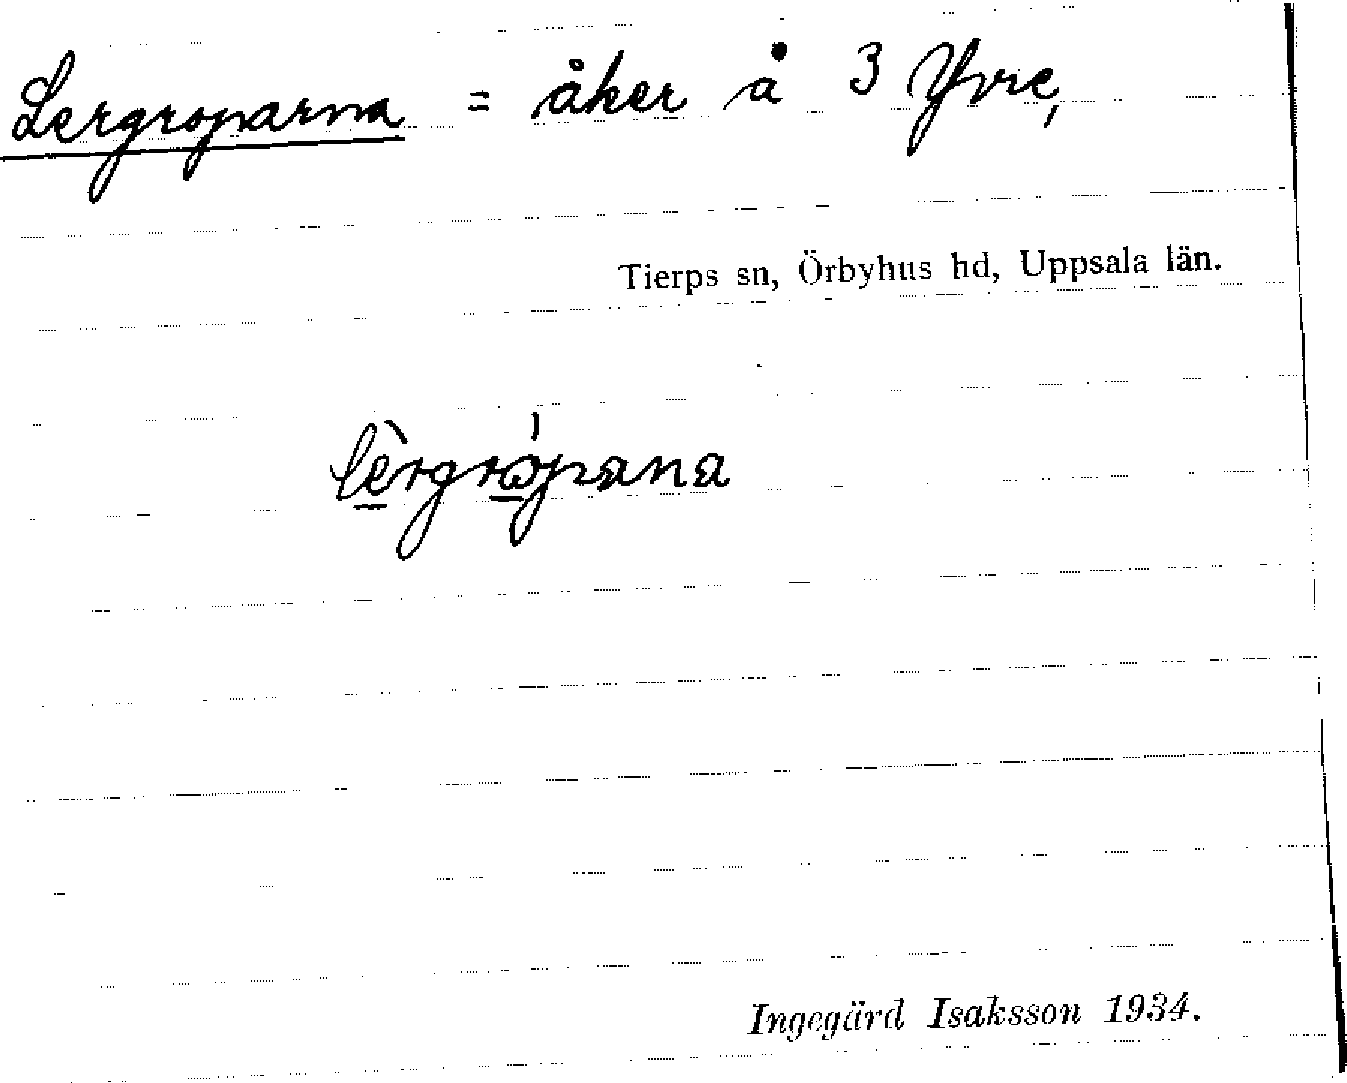 Lergroparna = åker å 3 Yvre,
Tierps sn, Örbyhus hd, Uppsala län.
lè̱rgrώ̱pana
Ingegärd Isaksson 1934.